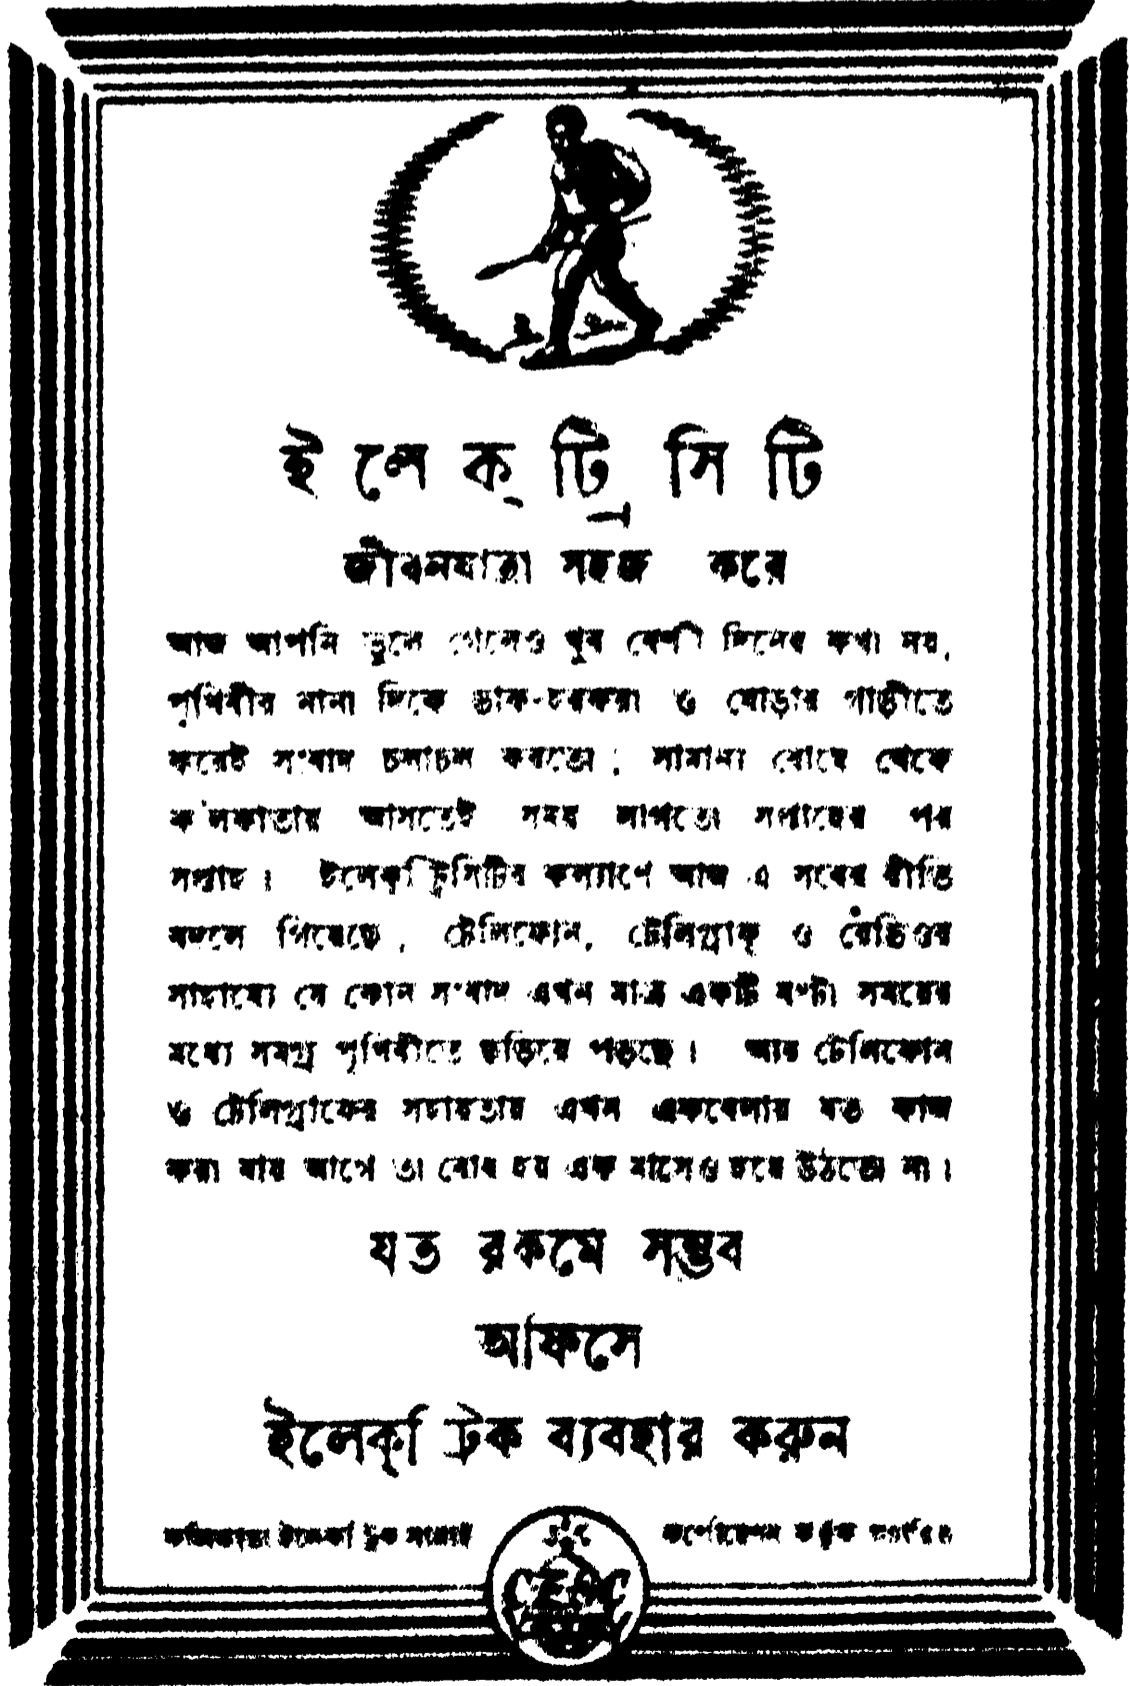 ইলেক্ট্রিসিটি
জীবনযাত্রা সহজ করে
আজ আপনি ভুলে গেলেও খুব বেশী দিনের কথা নয়,
পৃথিবীর নানা দিকে ডাক-হরকরা ও ঘোড়ার গাড়ীতে
করেই সংবাদ চলাচল করতো ; সামান্য বোম্বে থেকে
ক'লকাতায় আসতেই সময় লাগতো সপ্তাহের পর
সপ্তাহ । ইলেক্ট্রিসিটির কল্যাণে আজ এ সবের রীতি
বদলে গিয়েছে, টেলিফোন, টেলিগ্রাফ্ ও রেডিওর
সাহায্যে যে কোন সংবাদ এখন মাত্র একটি ঘণ্টা সময়ের
মধ্যে সমগ্র পৃথিবীতে ছড়িয়ে পড়ছে । আর টেলিফোন
ও টেলিগ্রাফের সহায়তায় এখন একবেলায় যত কাজ
করা যায় আগে তা বোধ হয় এক মাসেও হয়ে উঠতো না ।
যত রকমে সম্ভব
অফিসে
ইলেক্ট্রিক ব্যবহার করুন
কলিকাতা ইলেক্ট্রিক সাপ্লাই কর্পোরেশন কর্তৃক প্রচারিত